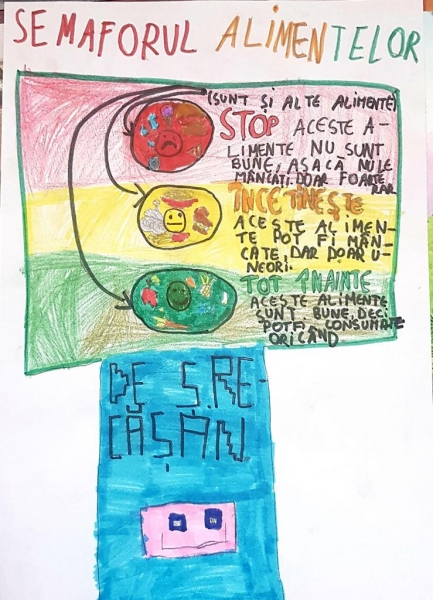 SEMAFORUL ALIMENTELOR
(SUNT ȘI ALTE ALIMENTE)
STOP ACESTE A-
LIMENTE NU SUNT
BUNE, AȘA CĂ NU LE
MÂNCAȚI. DOAR FOARTE
RAR
ÎNCETINEȘTE
ACESTE ALIMEN-
TE POT FI MÂN-
CATE, DAR DOAR U-
NEORI.
TOT ÎNAINTE
ACESTE ALIMENTE
SUNT BUNE, DECI
POT FI CONSUMATE
ORICÂND
DE Ș.RE-
CĂȘAN